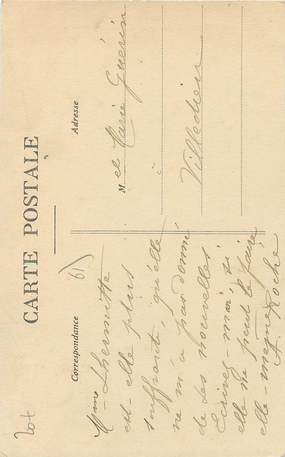 CARTE POSTALE
Correspondance
Adresse
Mme Lhermitte
est-elle plus
souffrante, qu'elle
ne m'a pas donné
de ses nouvelles
Ecrivez-moi si
elle ne peut le faire
elle-même
A. Roche
Melle Marie Guérin
Villedieu
61
Lot